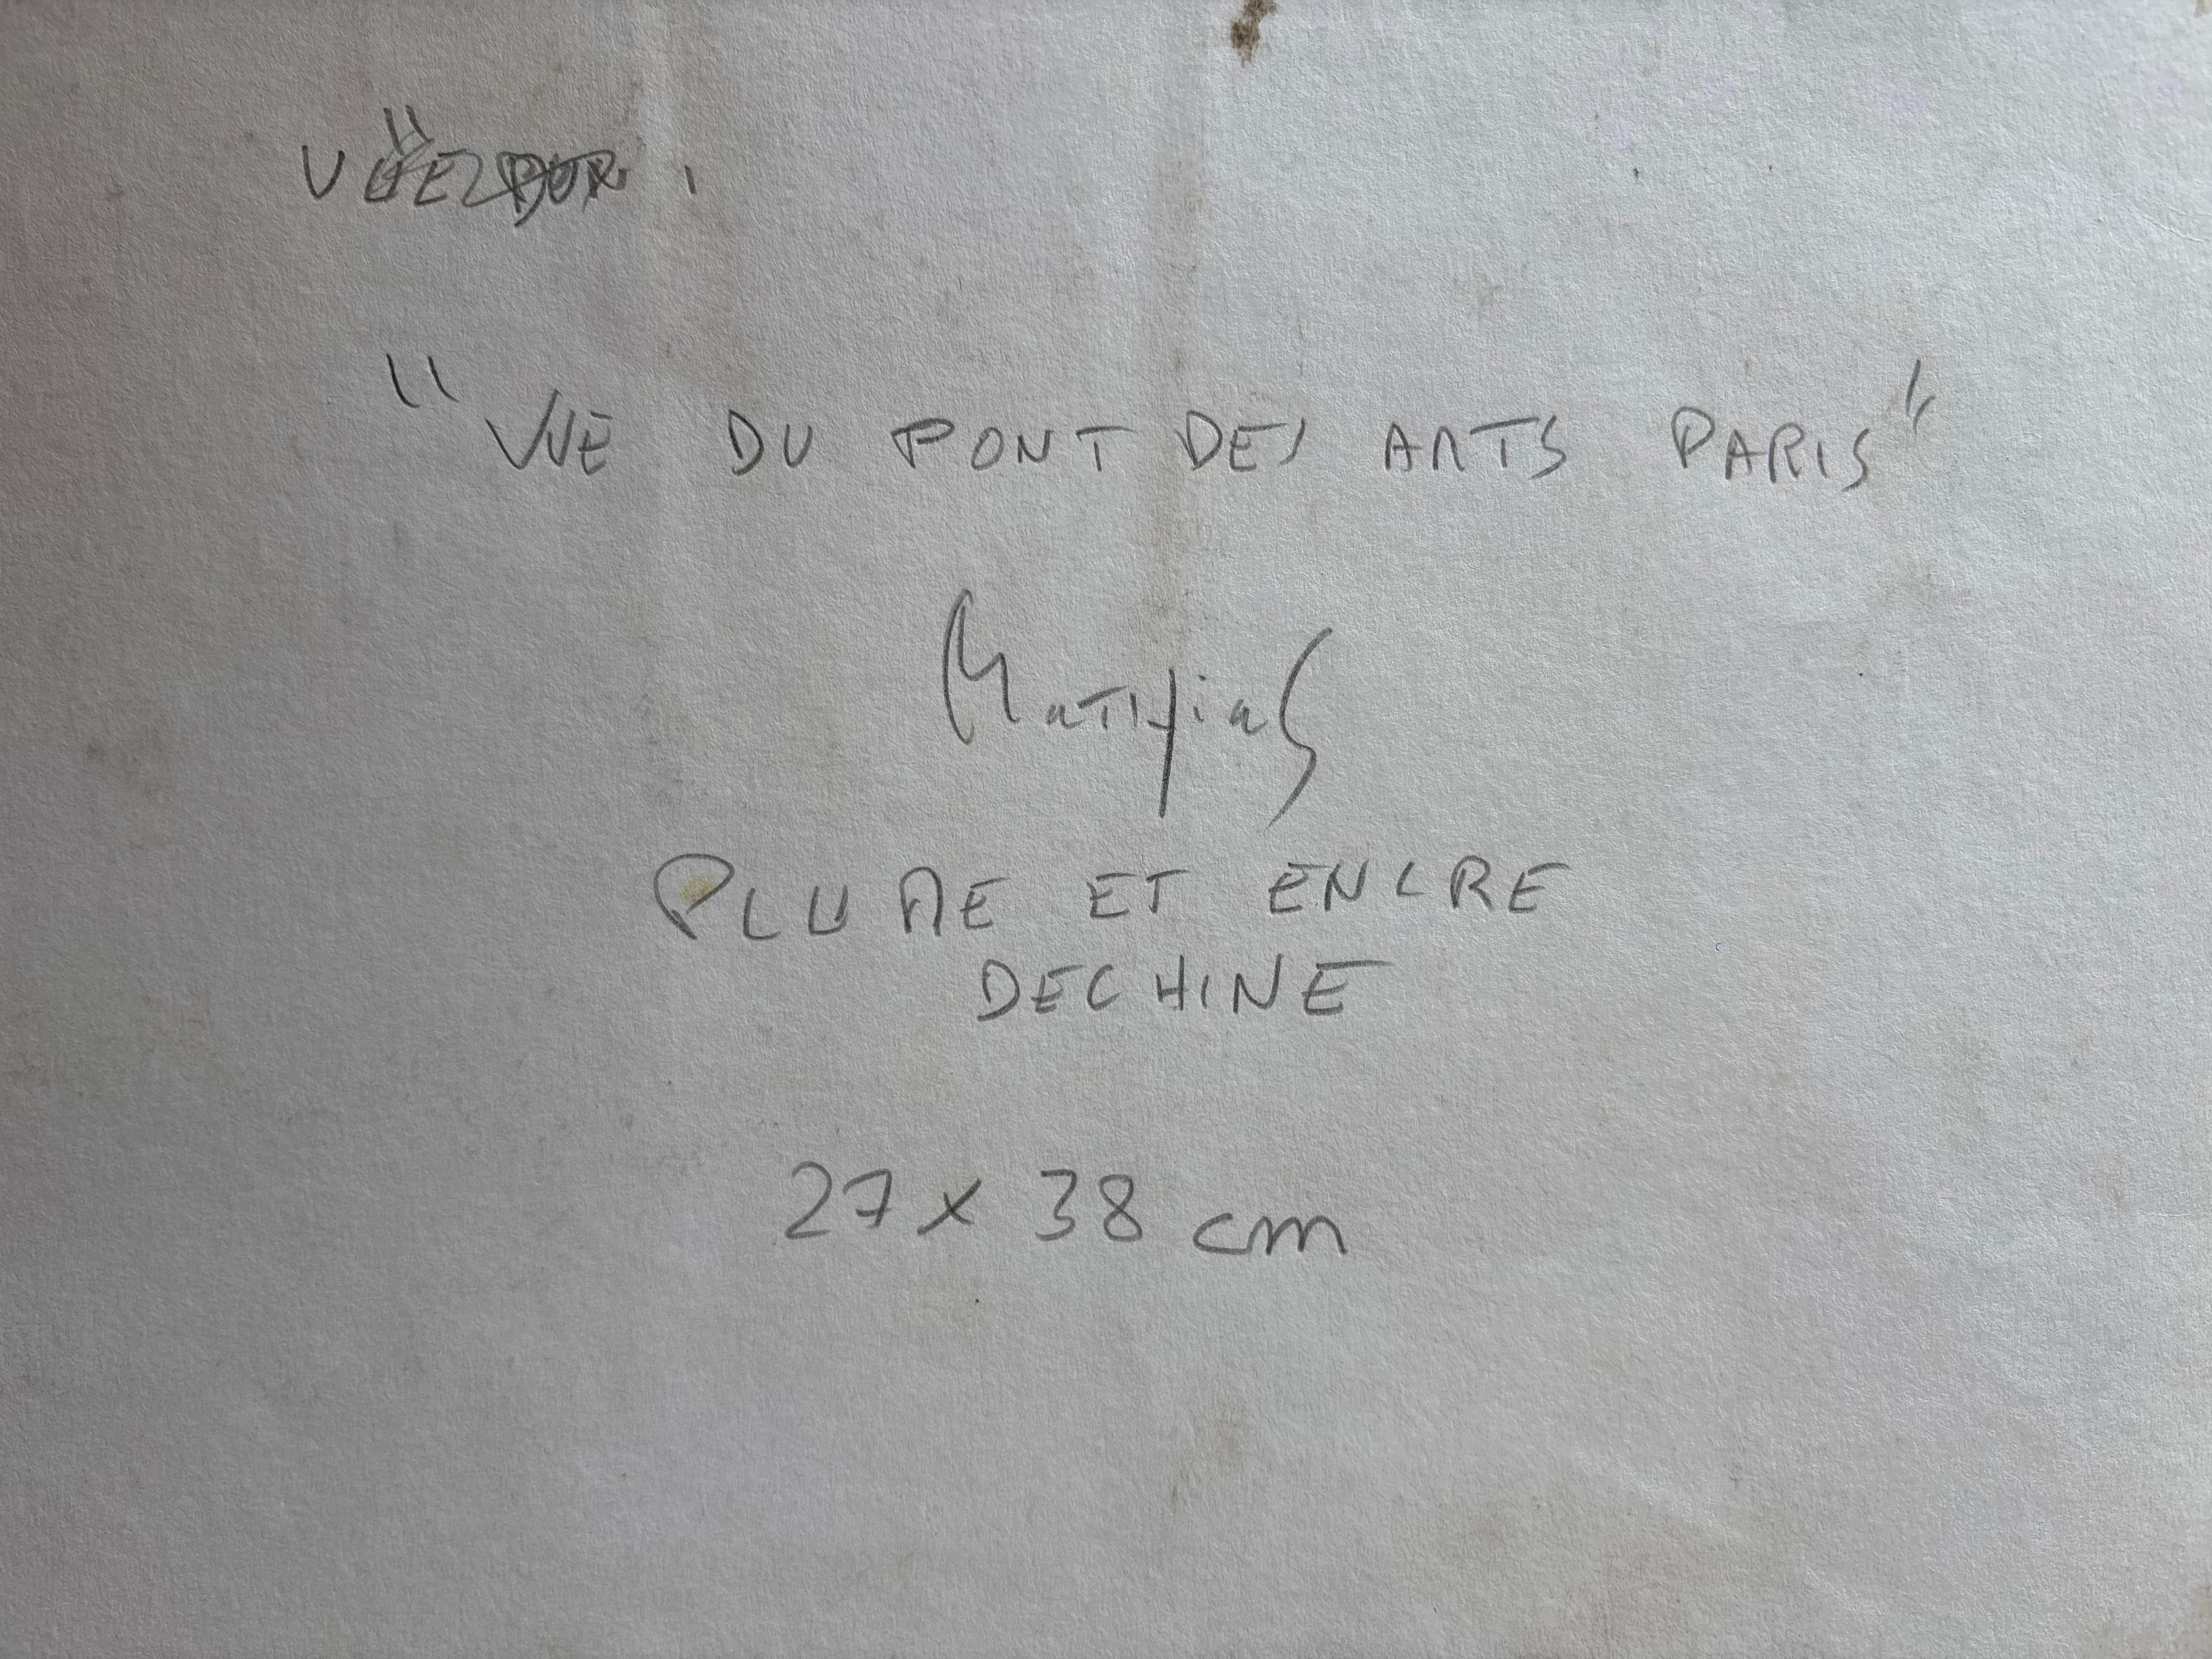 "VUE DU PONT DES ARTS PARIS"
PLUME ET ENCRE
DE CHINE
27 x 38 cm